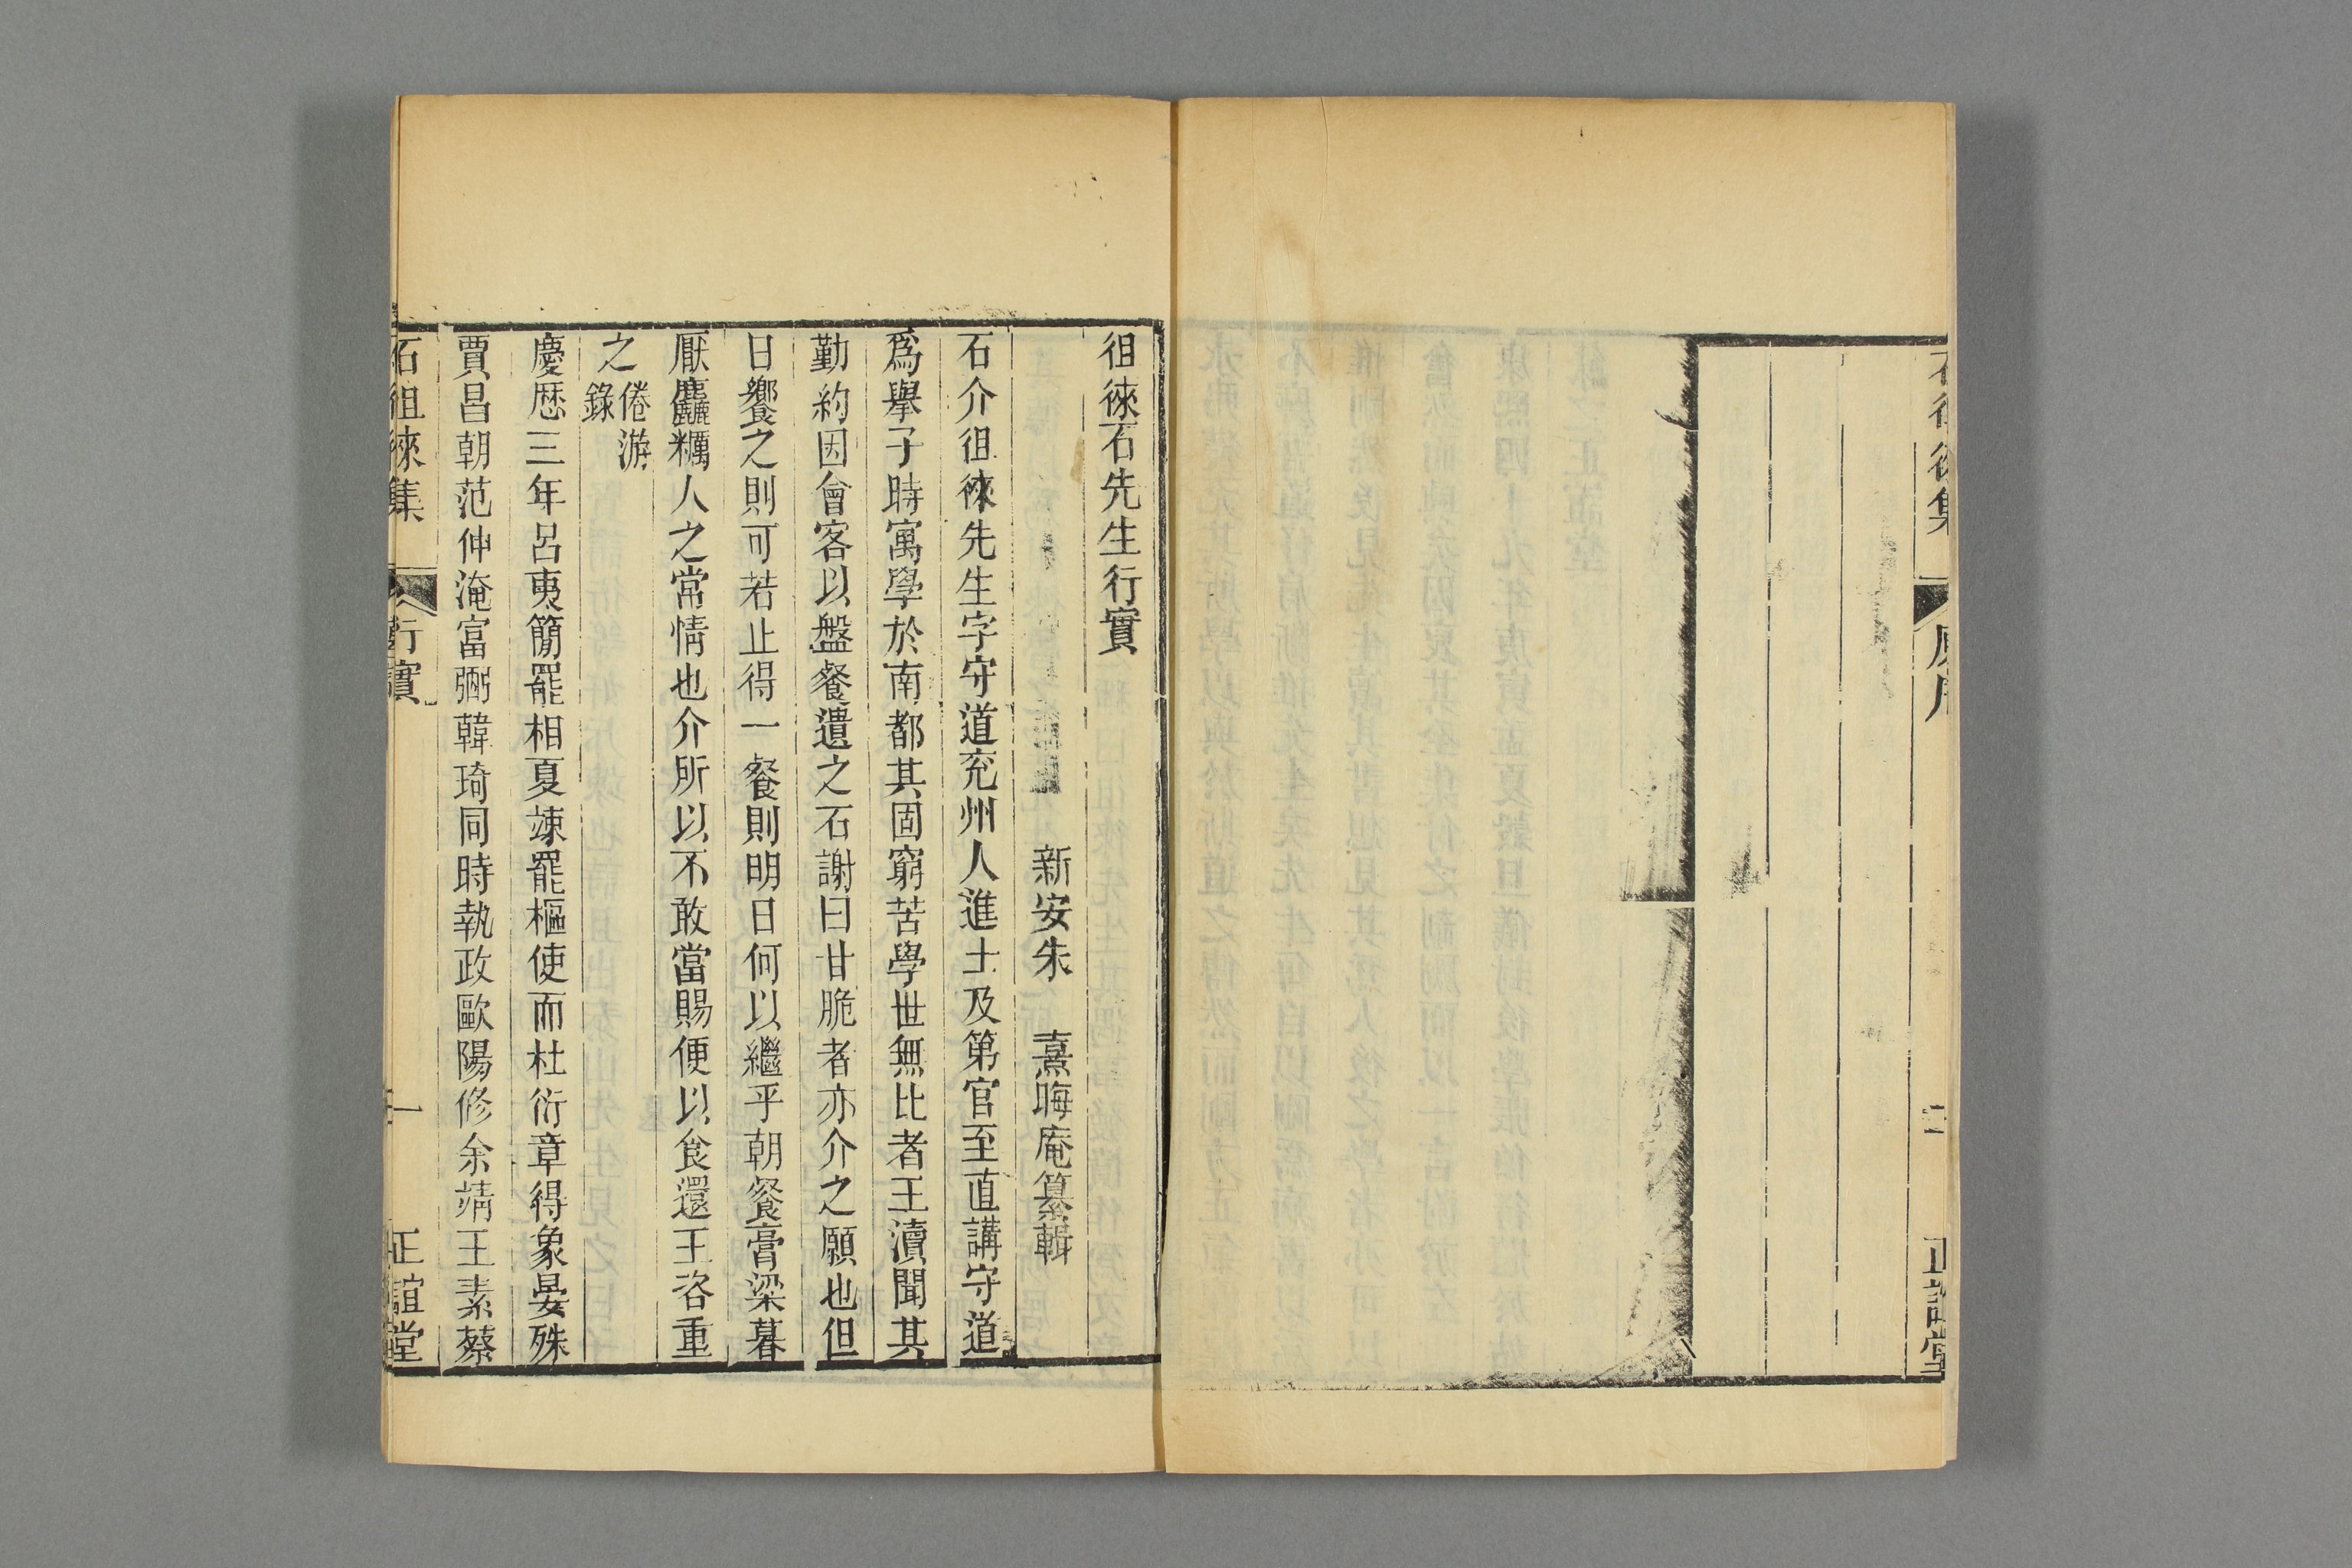 正誼堂
徂徠石先生行實
新安朱 熹晦庵纂輯
石介徂徠先生字守道兖州人進士及第官至直講守道
爲舉子時寓學於南都其固窮苦學世無比者王瀆聞其
勤約因會客以盤餐遺之石謝曰甘脆者亦介之願也但
日饗之則可若止得一餐則明日何以繼乎朝餐膏梁暮
厭麤糲人之常情也介所以不敢當賜便以食還王咨重
之倦游錄
慶歴三年呂夷簡罷相夏竦罷樞使而杜衍章得象晏殊
賈昌朝范仲淹富弼韓琦同時執政歐陽修余靖王素蔡
石徂徠集 行實 一 正誼堂